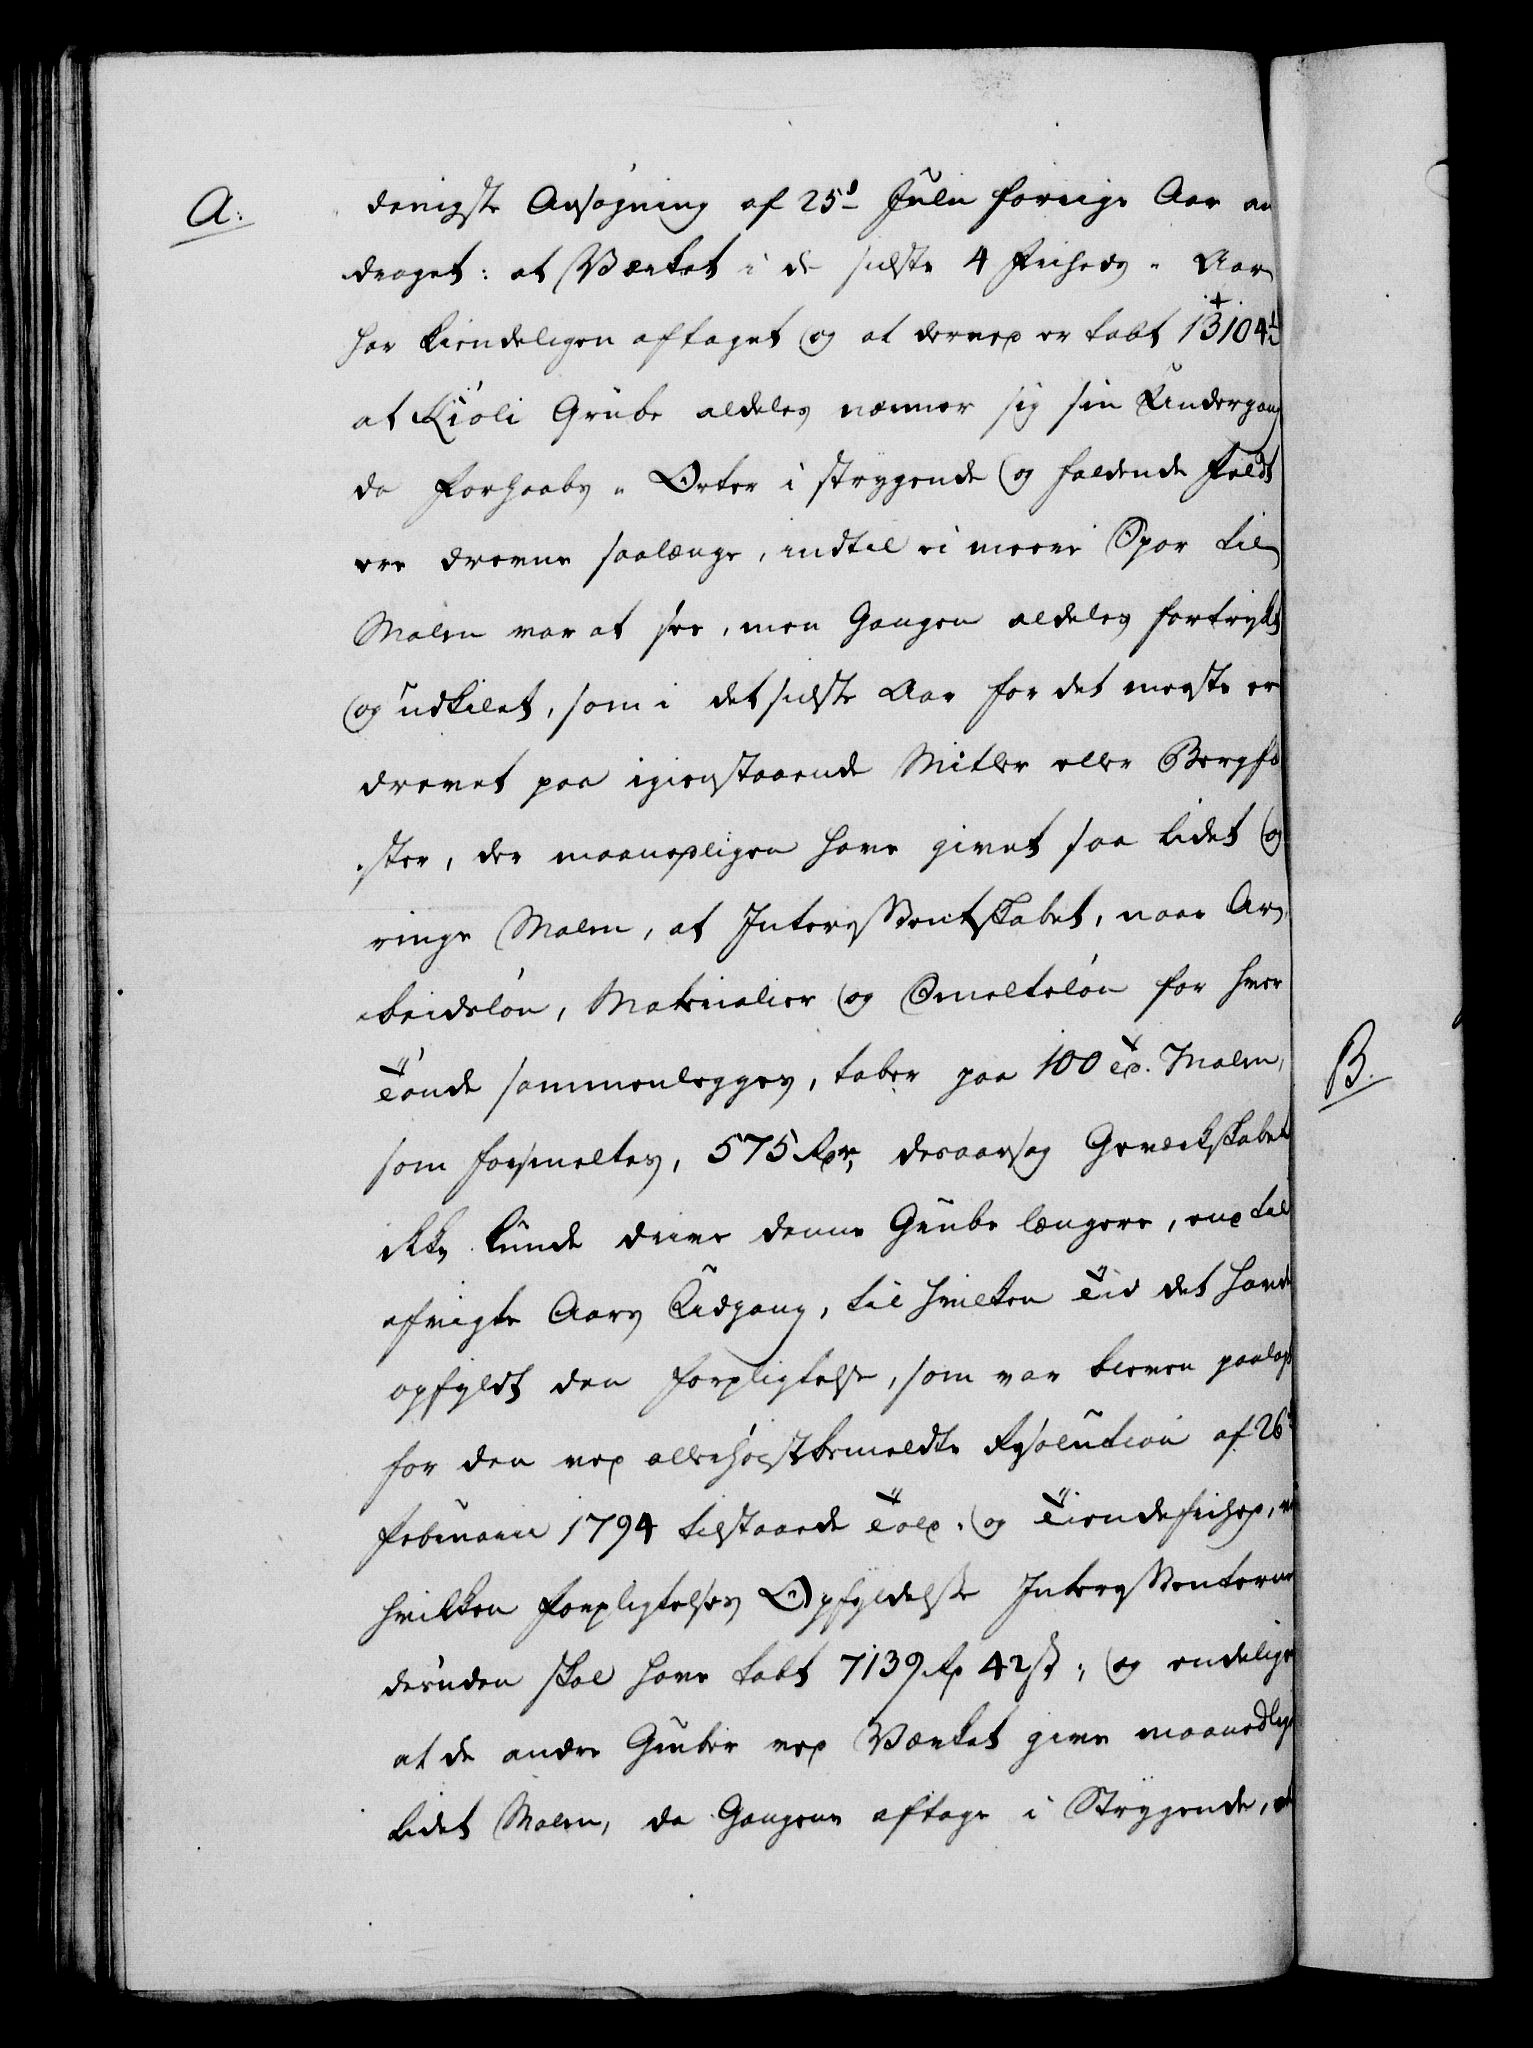 A:
danigste Ansøgning af 25d Julii forrige Aar an
draget: at Værket i de sidste 4 Friheds- Aar
har kiendeligen aftaget og at derved er tabt 13104
at Kiøli Grube aldeles nærmer sig sin Undergang
da Forhaabs- Ørter i strygende og faldende Feldt
ere drevne saalænge, indtil ei meere Spor til
Malm var at see, men Gangen aldeles fortrykt
og udkilet, som i det sidste Aar for det meeste er
drevet paa igienstaaende Mitler eller Bergfæ
ster, der maanedligen have givet saa lidet og
ringe Malm, at Interessentskabet, naar Ar-
beidsløn, Materialier og Smelteløn for hver
Tønde sammenlegges, taber paa 100 Td. Malm,
som forsmeltes, 575 Rdr, desaarsag Gewerkskabet
ikke kunde drive denne Grube længere, end til
afvigte Aars Udgang, til hvilken Tid det havde
opfyldt den Forpligtelse, som var bleven paalagt
for den ved allerhøistbemeldte Resolution af 26d
Februarii 1794 tilstaaede Told- og Tiendefrihed, ved
hvilken Forpligtelses Opfyldelse Interessenterne
desuden skal have tabt 7139 Rd 42 s; og endeligen
at de andre Gruber ved Værket give maanedlig
lidet Malm, da Gangene aftage i Strygende, at
B.